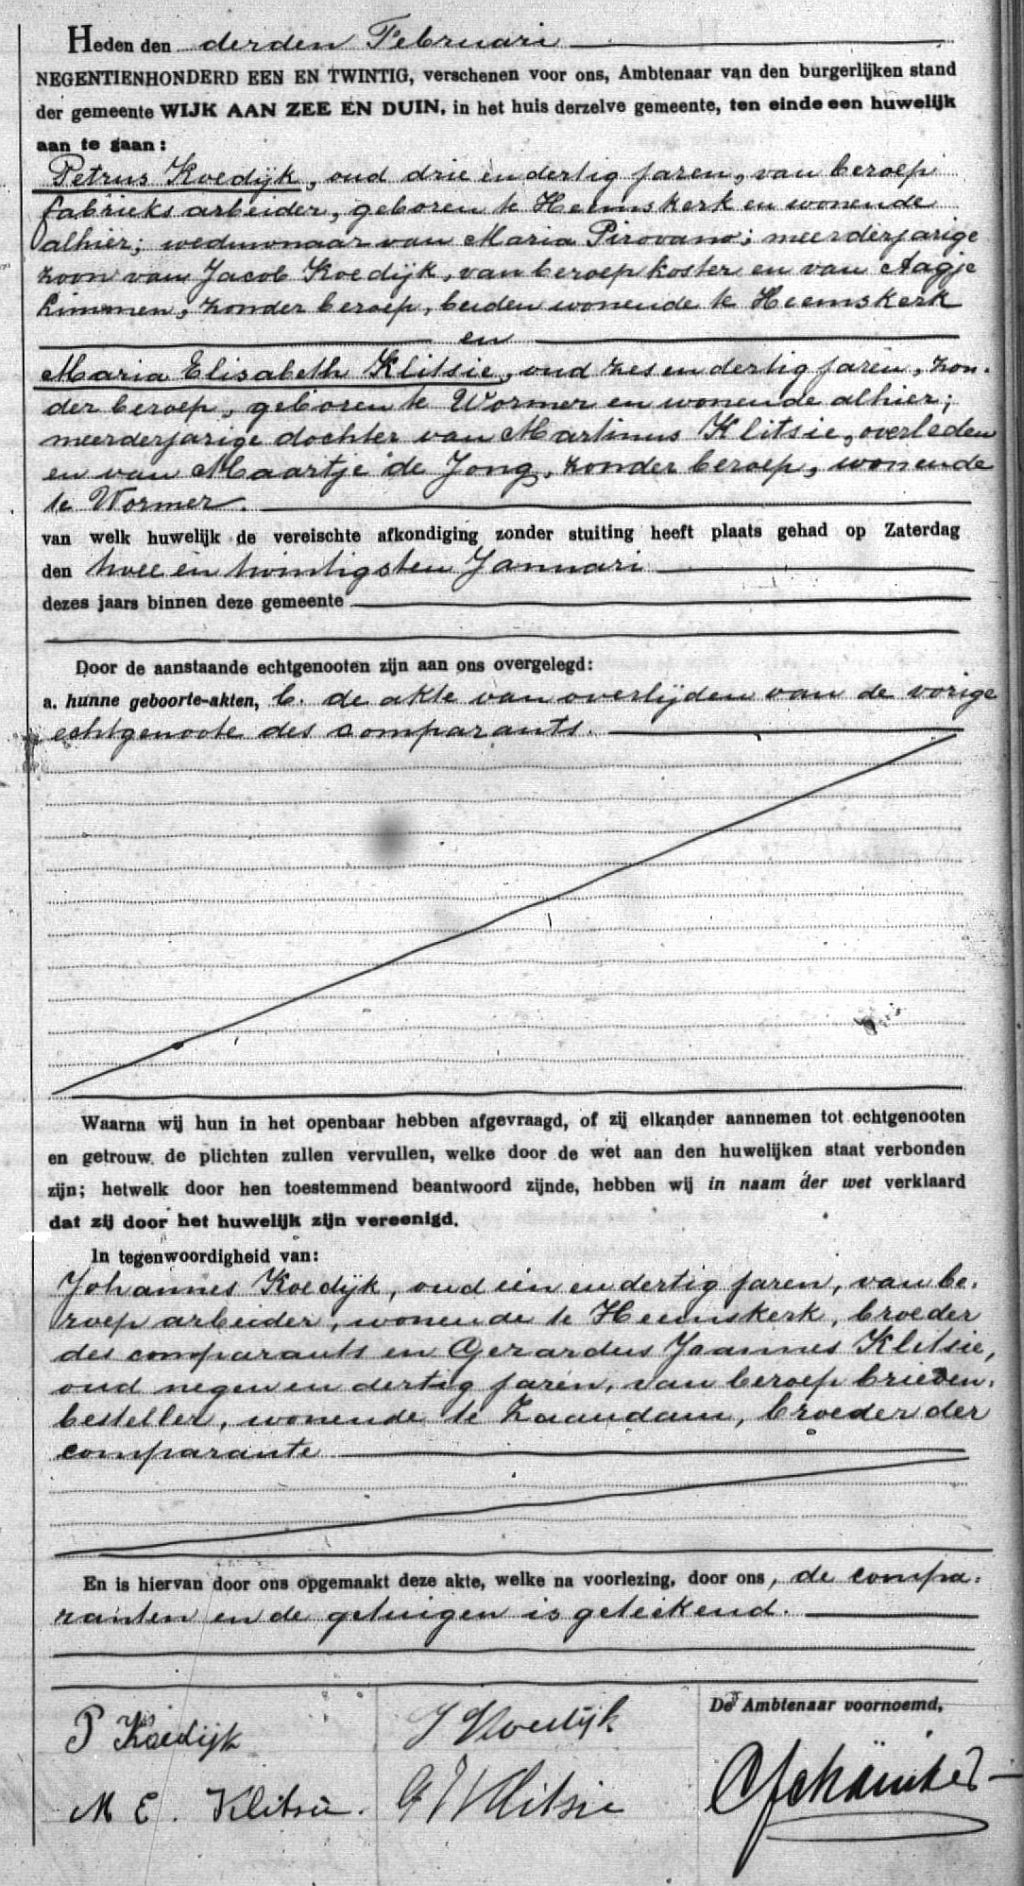 Heden den derden Februari
NEGENTIENHONDERD EEN EN TWINTIG, verschenen voor ons, Ambtenaar van den burgerlijken stand
der gemeente WIJK AAN ZEE EN DUIN, in het huis derzelve gemeente, ten einde een huwelijk
aan te gaan:
Petrus Koedijk, oud drie en dertig jaren, van beroep
fabrieks arbeider, geboren te Heemskerk en wonende
alhier; weduwnaar van Maria Pirovano; meerderjarige
zoon van Jacob Koedijk, van beroep koster en van Aagje
Limmen, zonder beroep, beiden wonende te Heemskerk
en
Maria Elisabeth Klitsie, oud zes en dertig jaren, zon-
der beroep, geboren te Wormer en wonende alhier;
meerderjarige dochter van Martinus Klitsie, overleden
en van Maartje de Jong, zonder beroep, wonende
te Wormer.
van welk huwelijk de vereischte afkondiging zonder stuiting heeft plaats gehad op Zaterdag
den twee en twintigsten Januari
dezes jaars binnen deze gemeente
Door de aanstaande echtgenooten zijn aan ons overgelegd:
a. hunne geboorte-akten, b. de akte van overlijden van de vorige
echtgenoote des comparants.
Waarna wij hun in het openbaar hebben afgevraagd, of zij elkander aannemen tot echtgenooten
en getrouw de plichten zullen vervullen, welke door de wet aan den huwelijken staat verbonden
zijn; hetwelk door hen toestemmend beantwoord zijnde, hebben wij in naam der wet verklaard
dat zij door het huwelijk zijn vereenigd.
In tegenwoordigheid van:
Johannes Koedijk, oud één en dertig jaren, van be-
roep arbeider, wonende te Heemskerk, broeder
des comparants en Gerardus Joannes Klitsie,
oud negen en dertig jaren, van beroep brieven-
besteller, wonende te Zaandam, broeder der
comparante
En is hiervan door ons opgemaakt deze akte, welke na voorlezing, door ons, de compa-
ranten en de getuigen is geteekend.
De Ambtenaar voornoemd,
P Koedijk
J Koedijk
M E. Klitsie.
G J Klitsie